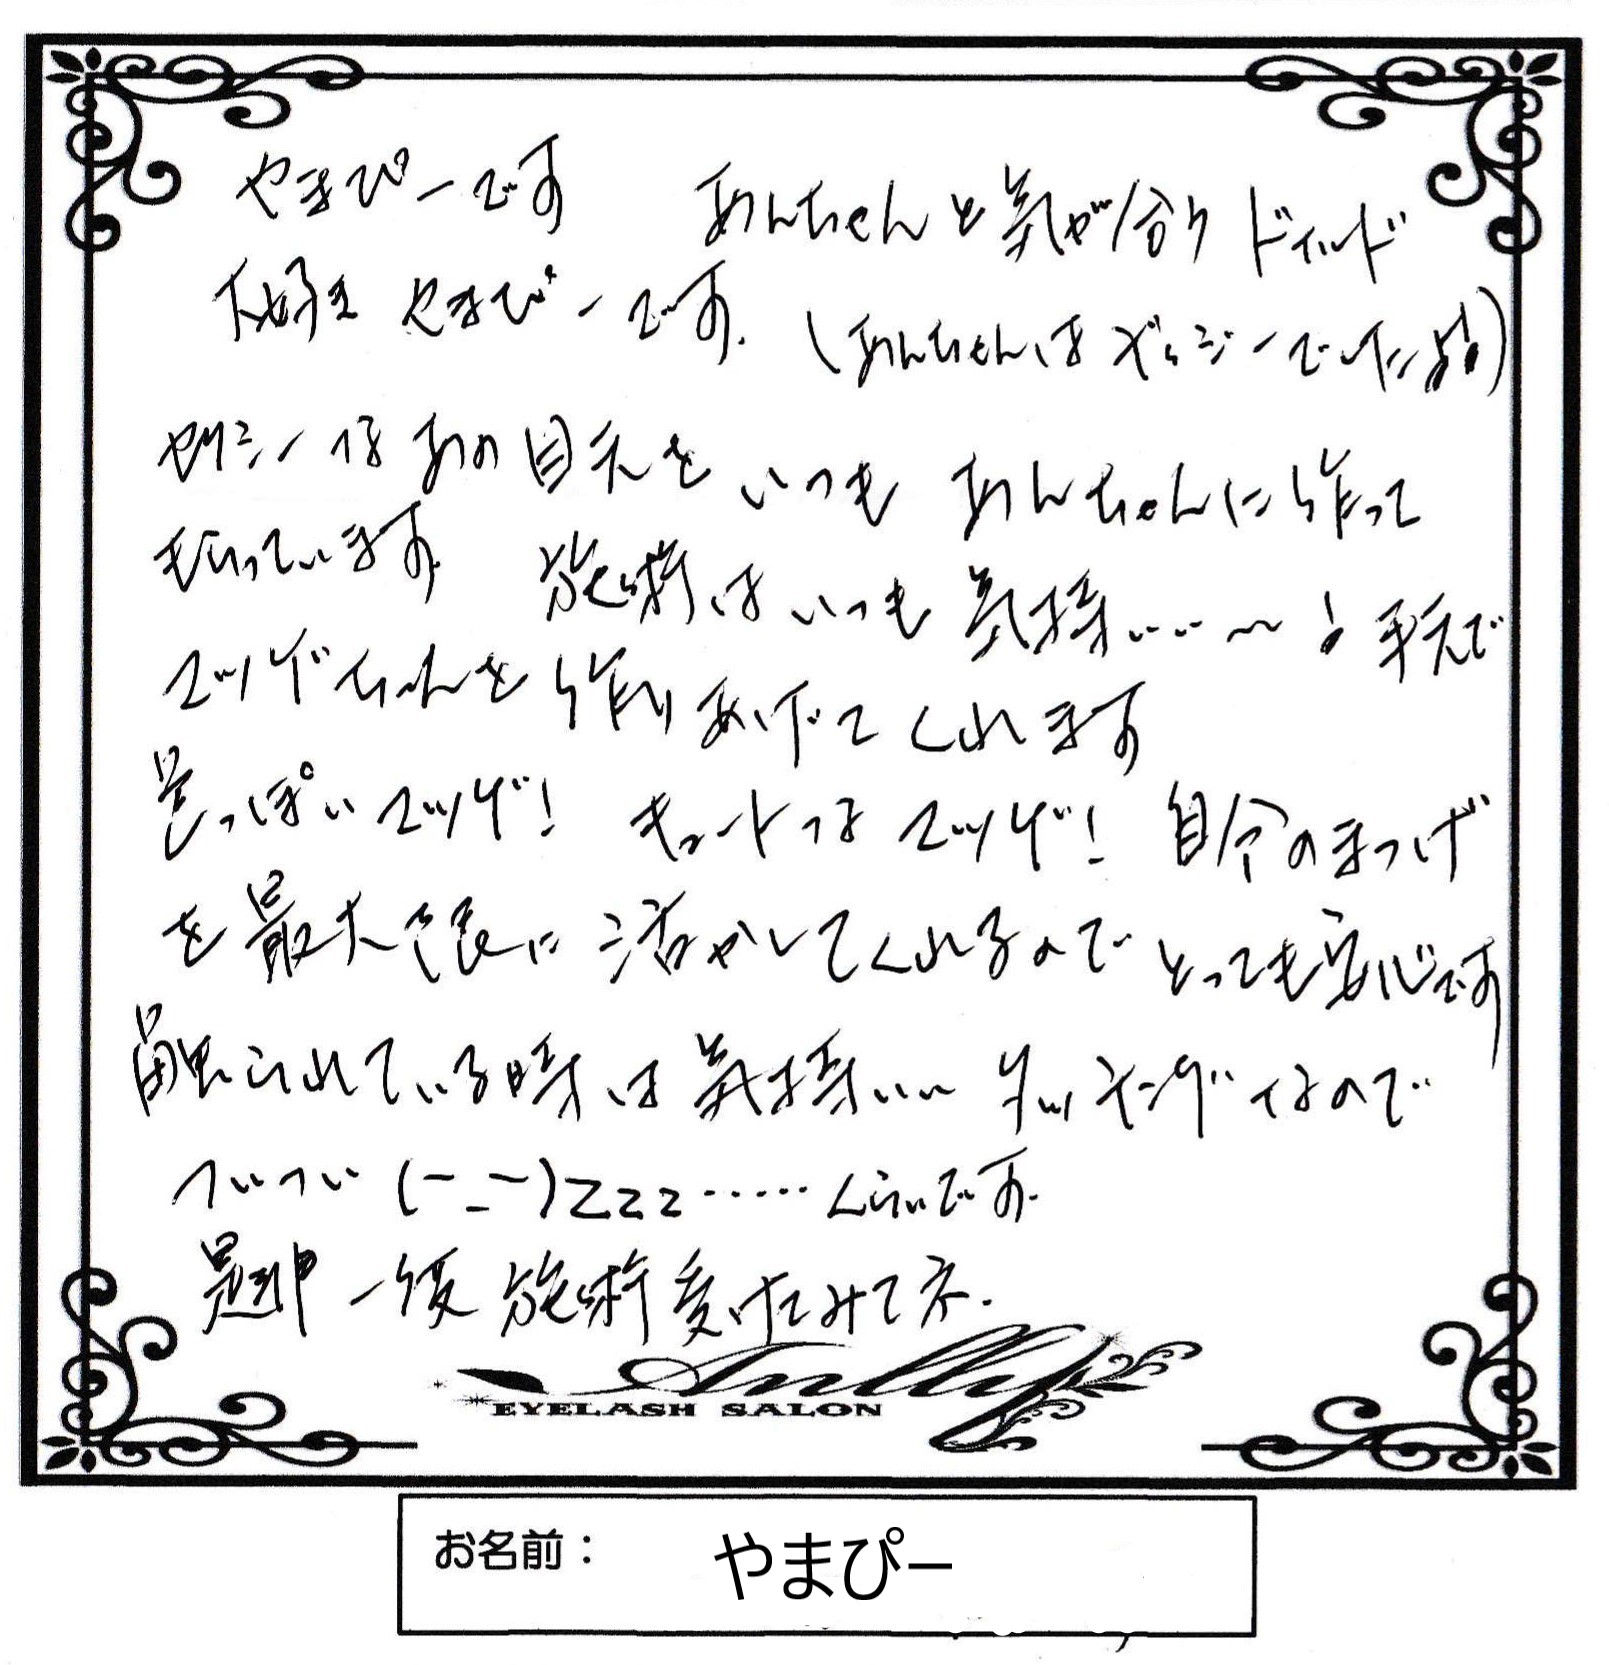 やまぴーです あんちゃんと気が合う
大好き やまぴーです。(あんちゃんは でした
セクシーな あの目元を いつも あんちゃんに作って
もらっています 施術はいつも気持いい〜♪ で
マツゲちゃんを作りあげてくれます
色っぽいマツゲ! キュートなマツゲ! 自分のまつげ
を最大限に活かしてくれるので とっても安心です
触られている時は気持いい タッチングなので
ついつい (-_-)zzz……くらいです。
是非一度施術受けてみて ネ.
Anlly
EYELASH SALON
お名前: やまぴー